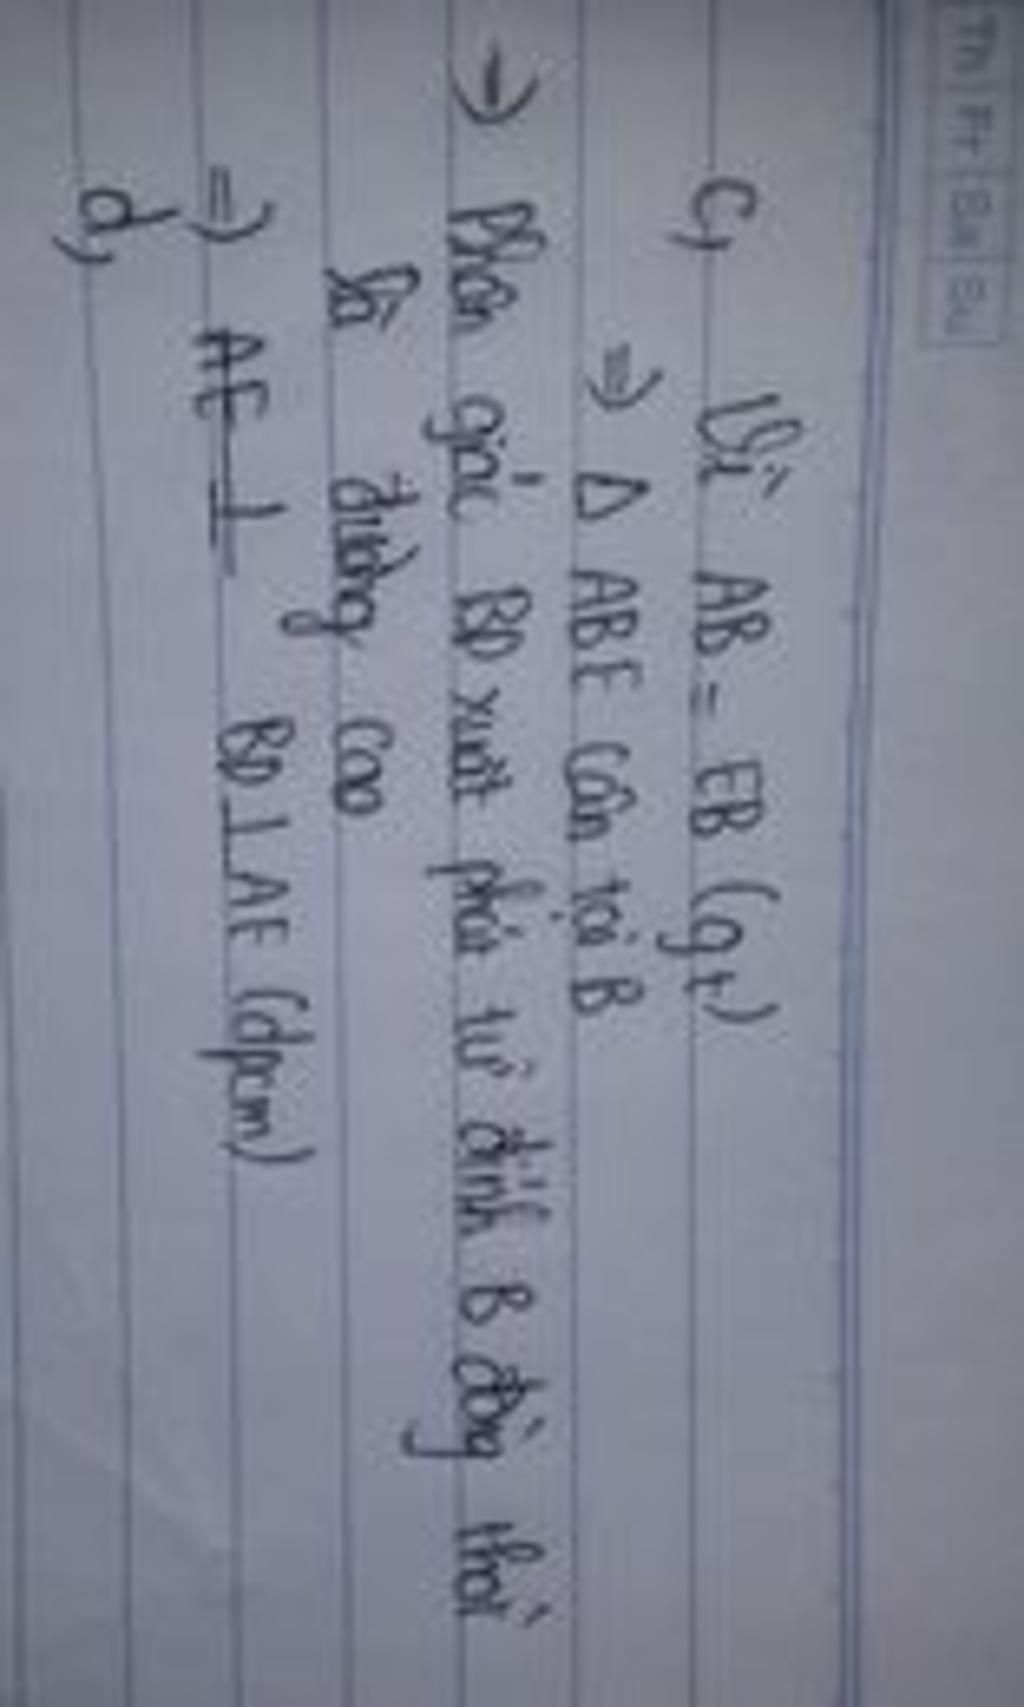 Th Fr Sa Su
c, Vì AB = EB (gt)
=> Δ ABE cân tại B
→ Phân giác BD xuất phát từ đỉnh B đồng thời
là đường cao
=> AE ⊥ BD ⊥ AE (đpcm)
d,